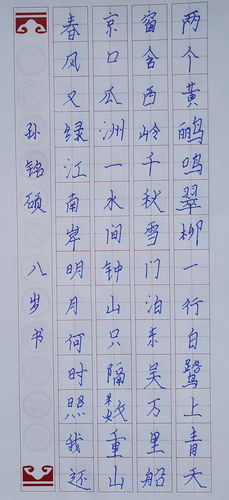 两个黄鹂鸣翠柳一行白鹭上青天
窗含西岭千秋雪门泊东吴万里船
京口瓜洲一水间钟山只隔数重山
春风又绿江南岸明月何时照我还
孙铭硕 八岁书